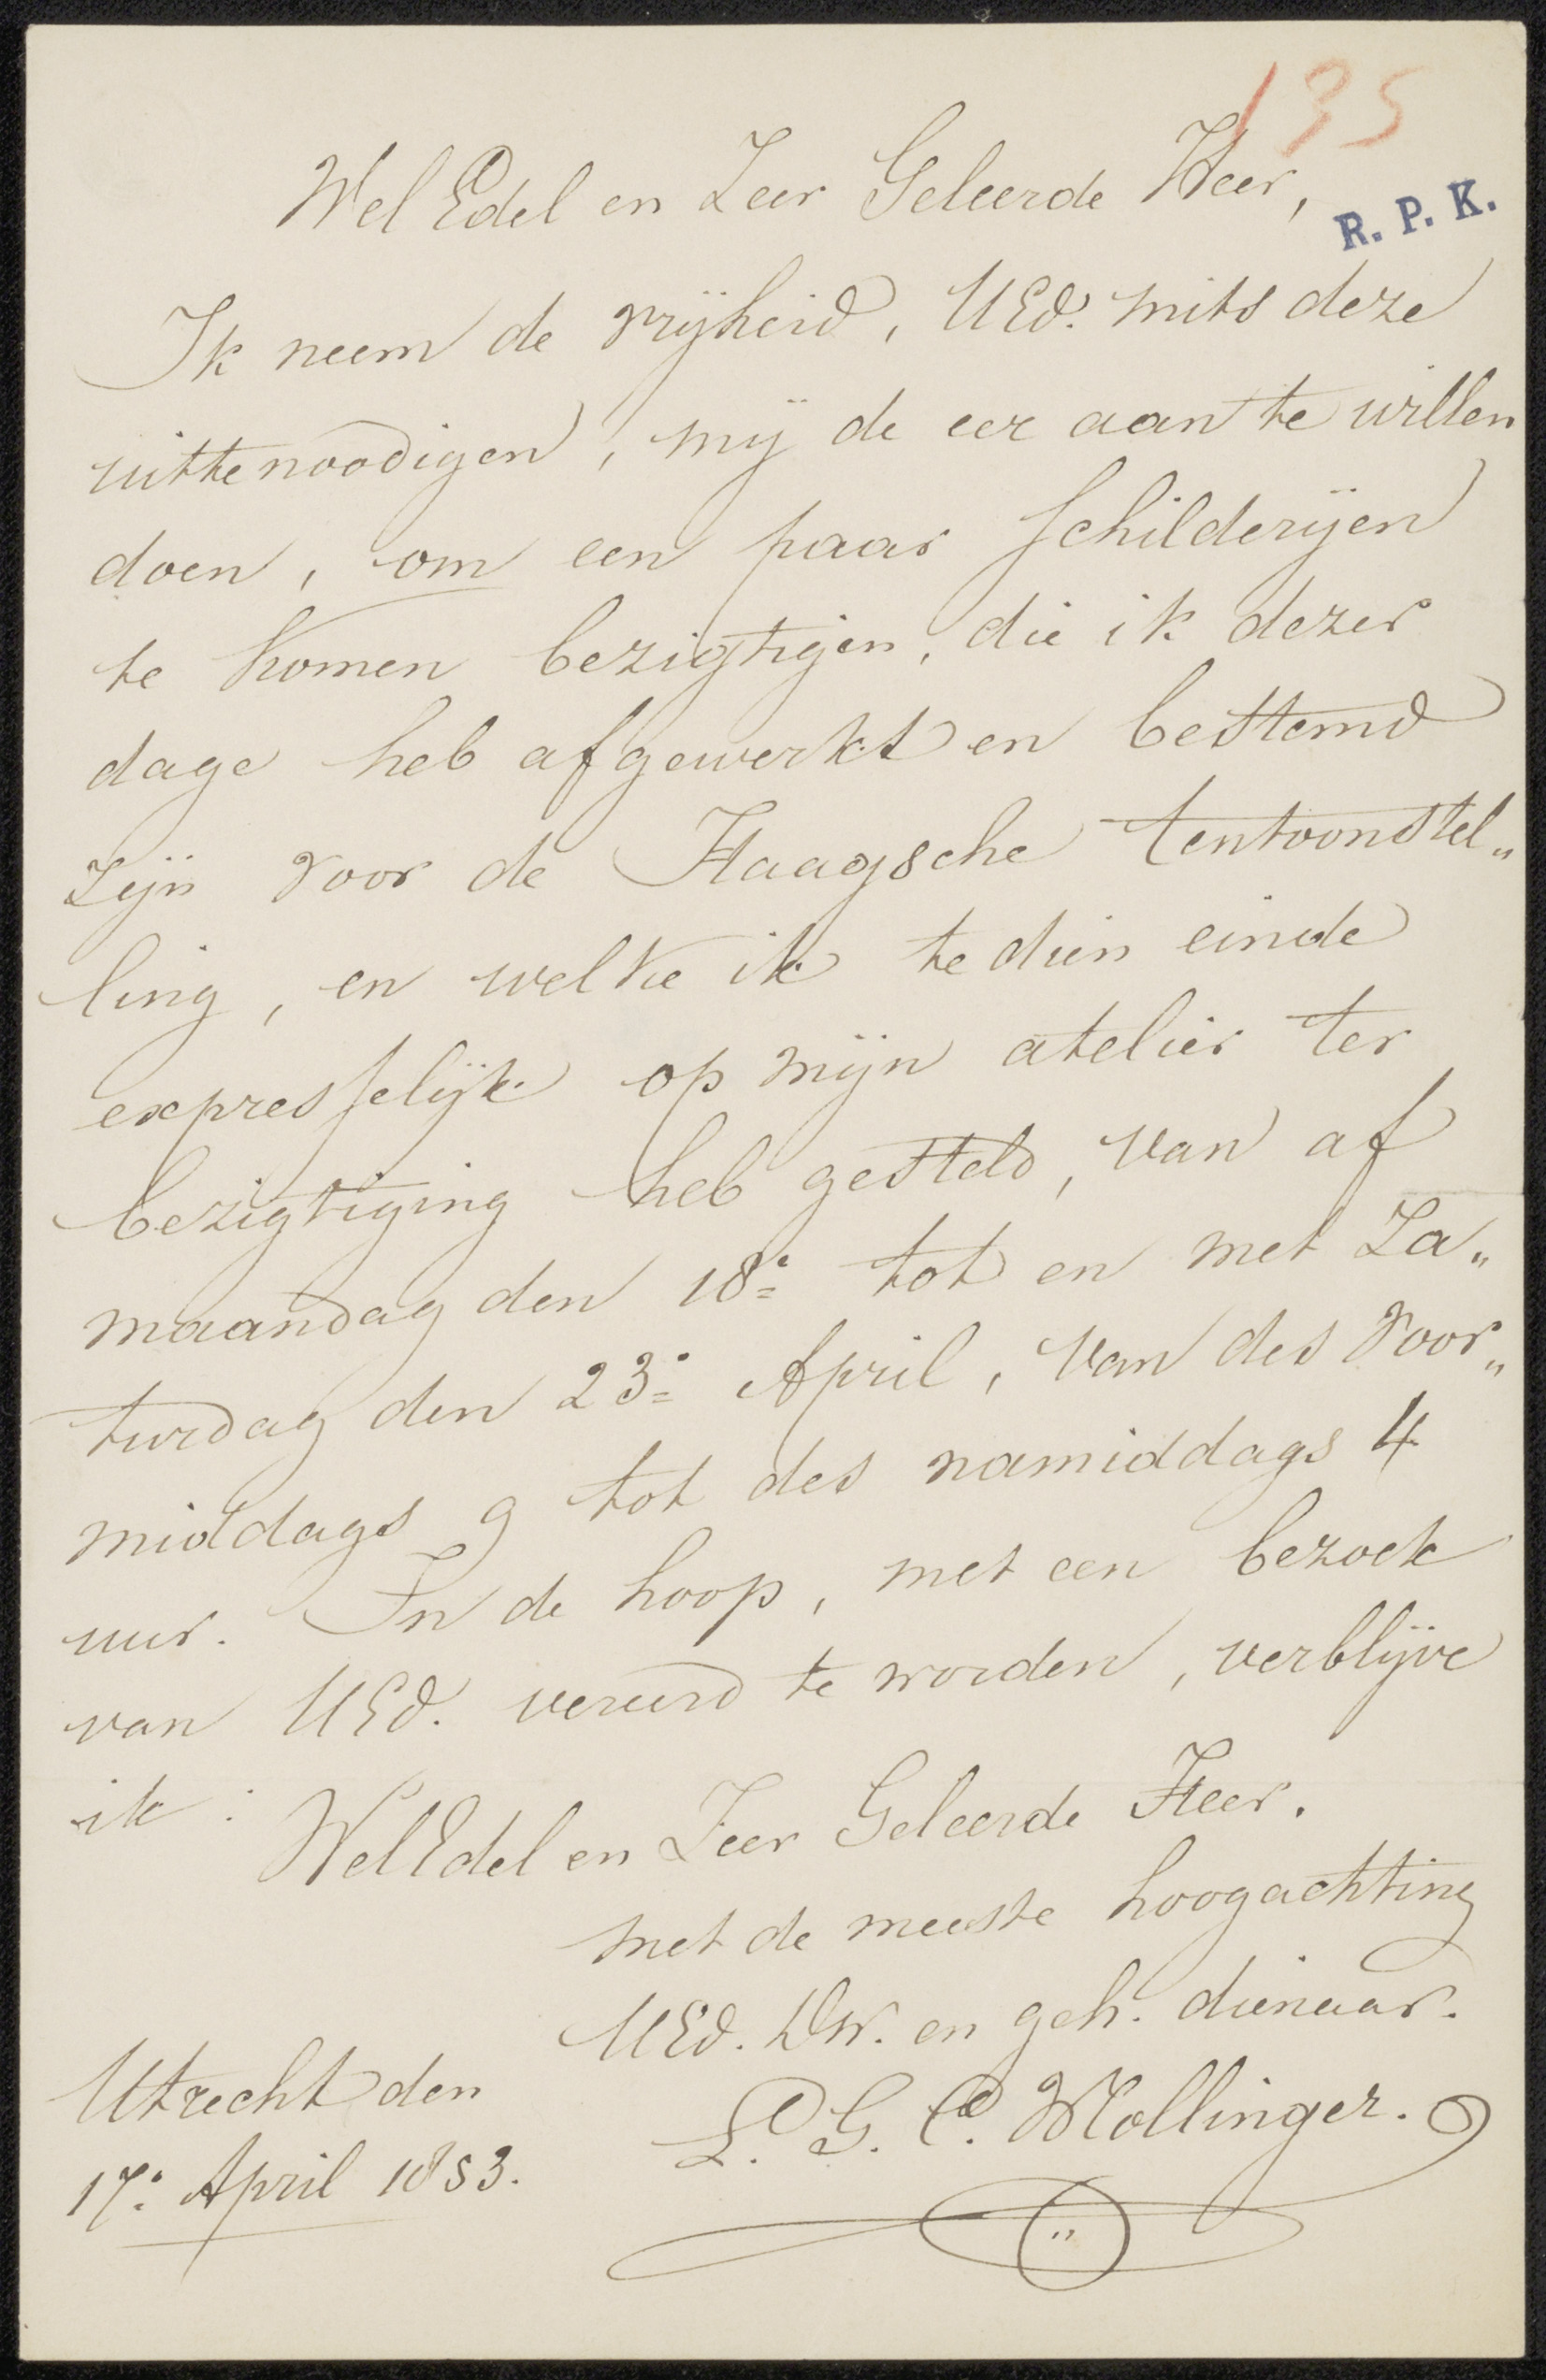 135
Wel Edel en Zeer Geleerde Heer,
R. P. K.
Ik neem de vrijheid, UEd. mits deze
uittenoodigen, mij de eer aan te willen
doen, om een paar schilderijen
te komen bezigtigen, die ik dezer
dage heb afgewerkt en bestemd
zijn voor de Haagsche tentoonstel„
ling, en welke ik te dien einde
expresselijk op mijn atelier ter
bezigtiging heb gesteld, van af
maandag den 18e tot en met Za„
turdag den 23e April, van des voor„
middags 9 tot des namiddags 4
uur. In de hoop, met een bezoek
van UEd. vereerd te worden, verblijve
ik :
Wel Edel en Zeer Geleerde Heer.
met de meeste hoogachting
UEd. DW. en geh. dienaar.
Utrecht den
L. G. C. Mollinger.
17e April 1853.